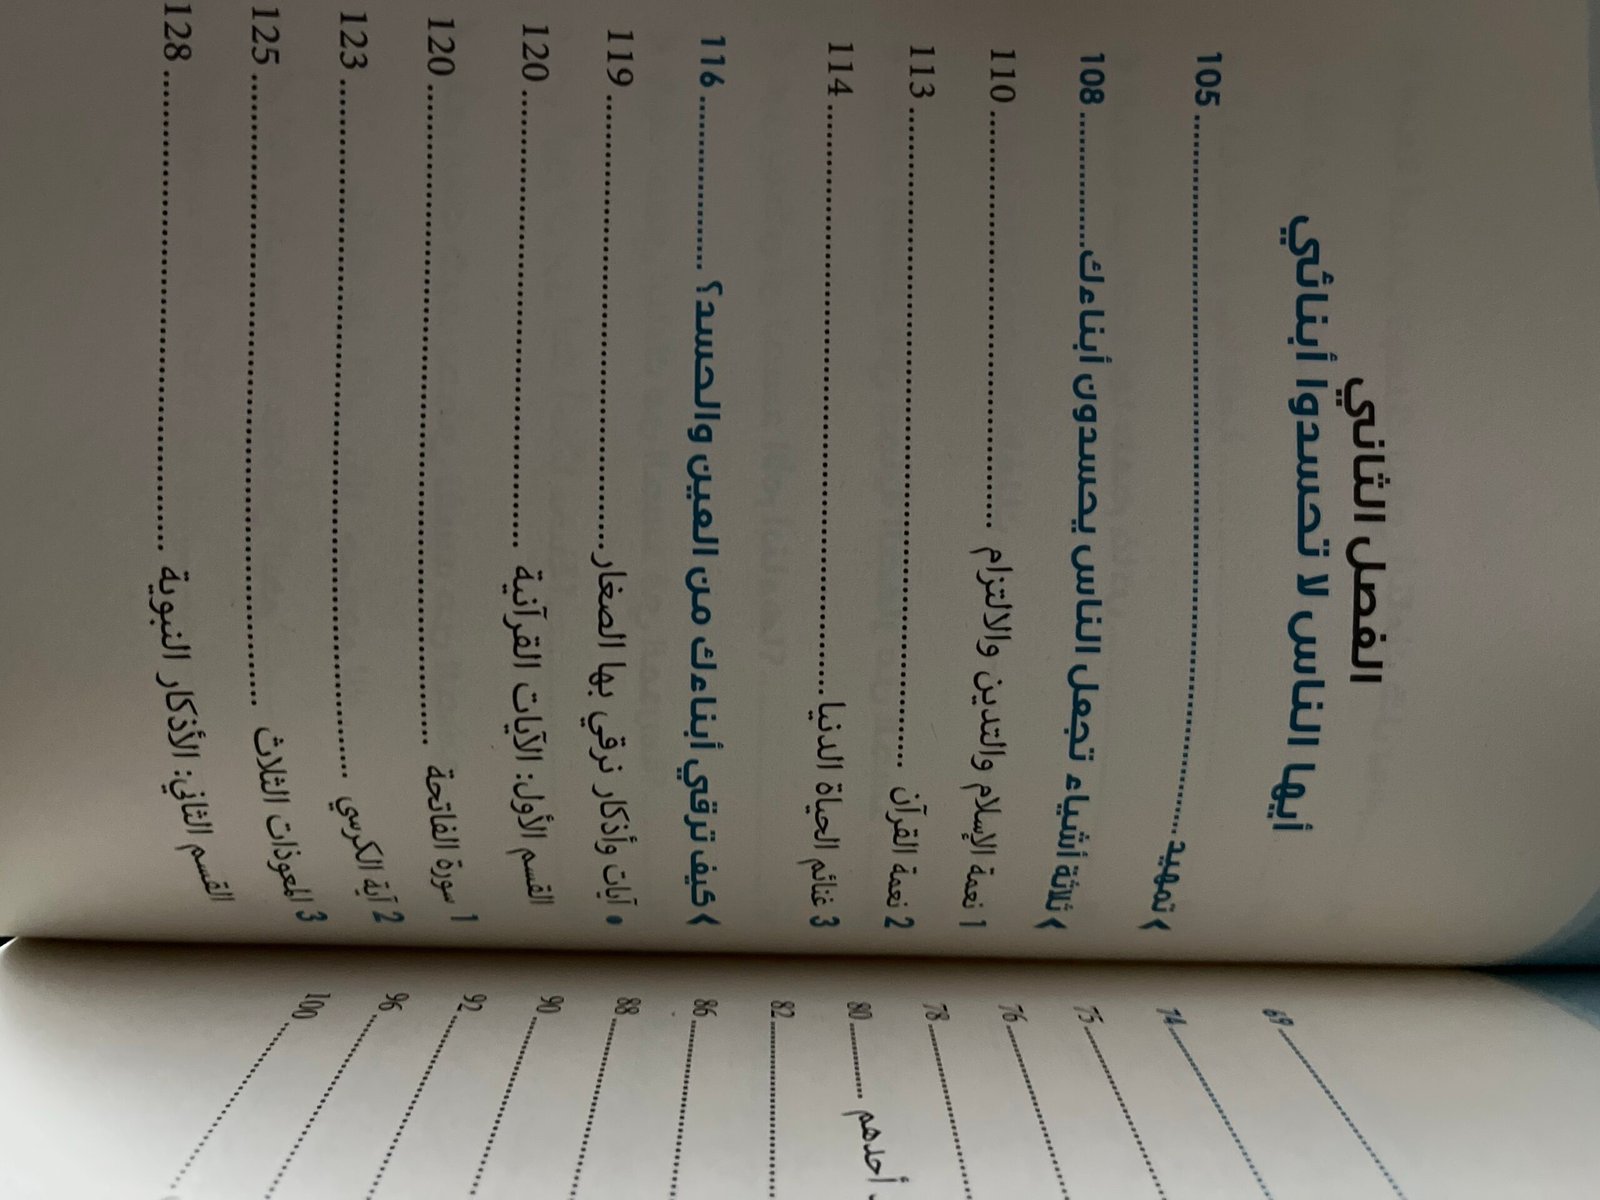 الفصل الثاني
أيها الناس لا تحسدوا أبنائي
› تمهيد ........ 105
› ثلاثة أشياء تجعل الناس يحسدون أبناءك ........ 108
1 نعمة الإسلام والتدين والالتزام ........ 110
2 نعمة القرآن ........ 113
3 غنائم الحياة الدنيا ........ 114
› كيف ترقي أبناءك من العين والحسد؟ ........ 116
• آيات وأذكار نرقي بها الصغار ........ 119
القسم الأول: الآيات القرآنية ........ 120
1 سورة الفاتحة ........ 120
2 آية الكرسي ........ 123
3 المعوذات الثلاث ........ 125
القسم الثاني: الأذكار النبوية ........ 128
........ 69
........ 74
........ 75
........ 76
........ 78
أحدهم ........ 80
........ 82
........ 86
........ 88
........ 90
........ 92
........ 96
........ 100